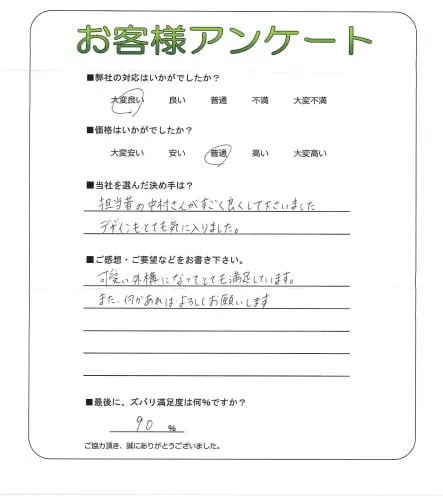 お客様アンケート
■弊社の対応はいかがでしたか？
大変良い 良い 普通 不満 大変不満
■価格はいかがでしたか？
大変安い 安い 普通 高い 大変高い
■当社を選んだ決め手は？
担当者の中村さんがすごく良くして下さいました
デザインもとても気に入りました。
■ご感想・ご要望などをお書き下さい。
可愛い外構になってとても満足しています。
また、何かあれば よろしくお願いします
■最後に、ズバリ満足度は何％ですか？
90 ％
ご協力頂き、誠にありがとうございました。